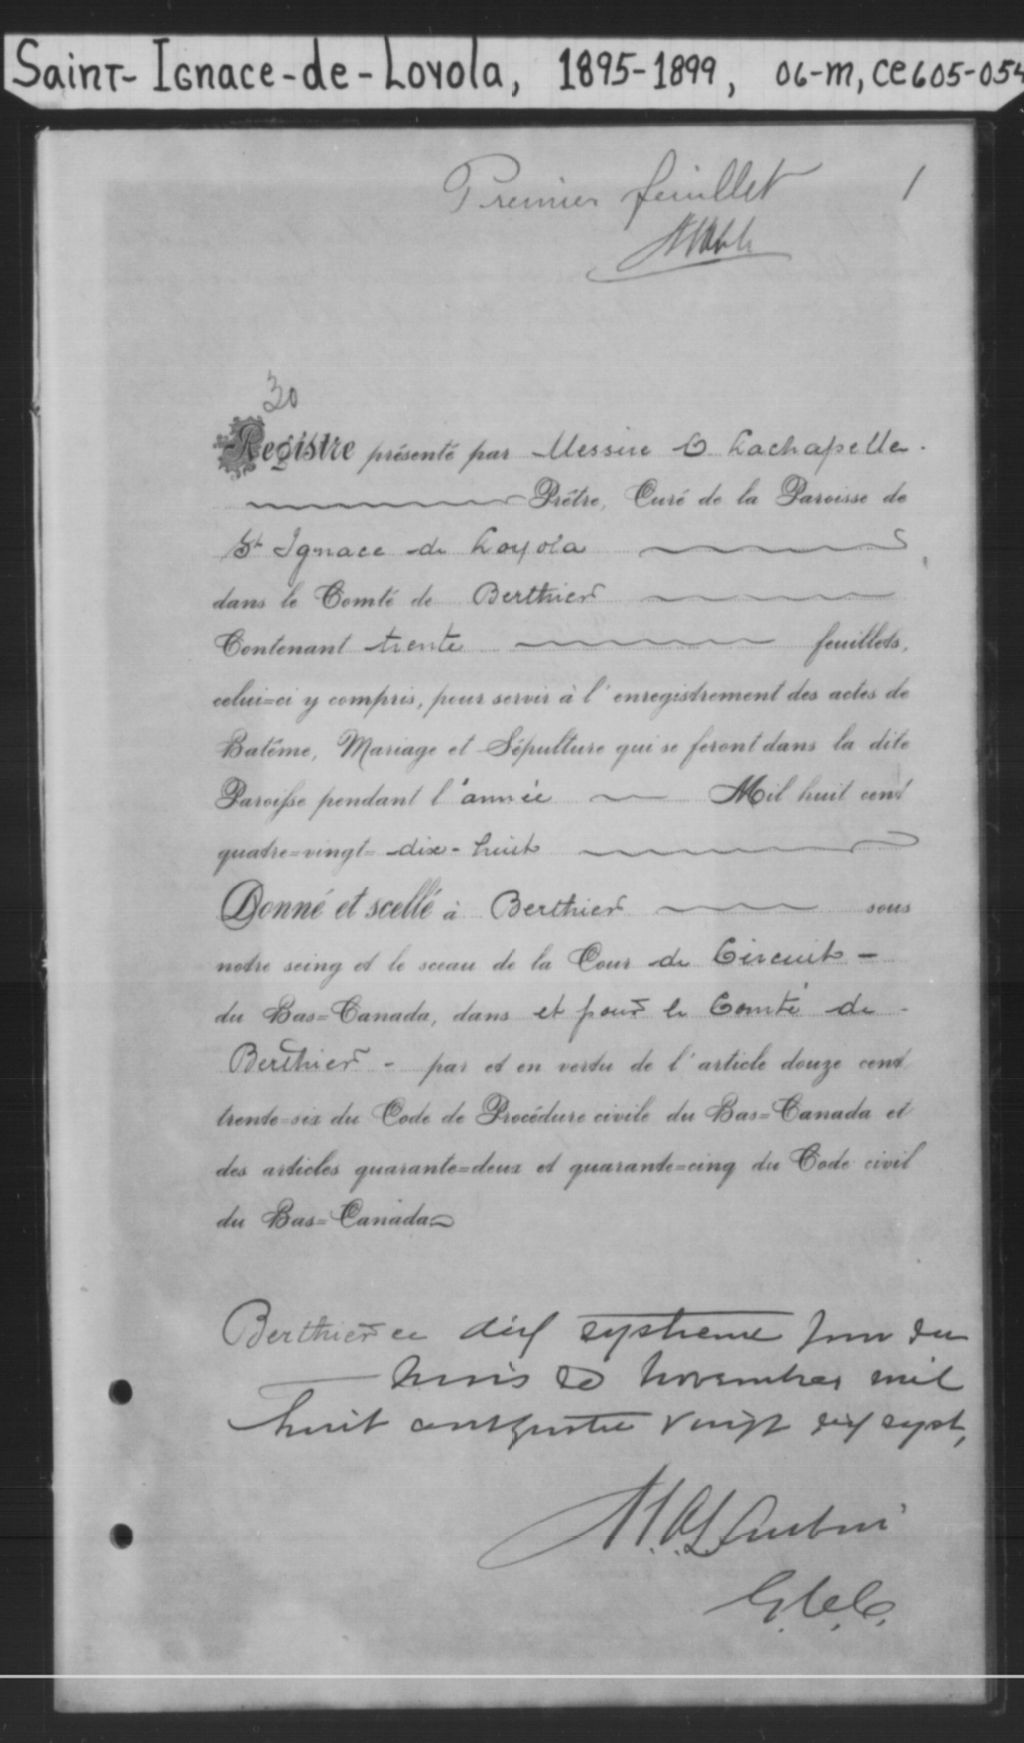 Saint-Ignace-de-Loyola, 1895-1899, 06-M, CE605-054
Premier feuillet 1
30
Registre présenté par Messire Lachapelle
Prêtre, Curé de la Paroisse de
St Ignace de Loyola
dans le Comté de Berthier
Contenant trente feuillets,
celui=ci y compris, pour servir à l'enregistrement des actes de
Batême, Mariage et Sépulture qui se feront dans la dite
Paroisse pendant l'année Mil huit cent
quatre=vingt=dix-huit
Donné et scellé à Berthier sous
notre seing et le sceau de la Cour de Circuit -
du Bas=Canada, dans et pour le Comté de -
Berthier - par et en vertu de l'article douze cent
trente-six du Code de Procédure civile du Bas=Canada et
des articles quarante=deux et quarante=cinq du Code civil
du Bas=Canada
Berthier ce dix septieme jour du
mois de novembre mil
huit cent quatre vingt dix sept,
G.C.C.